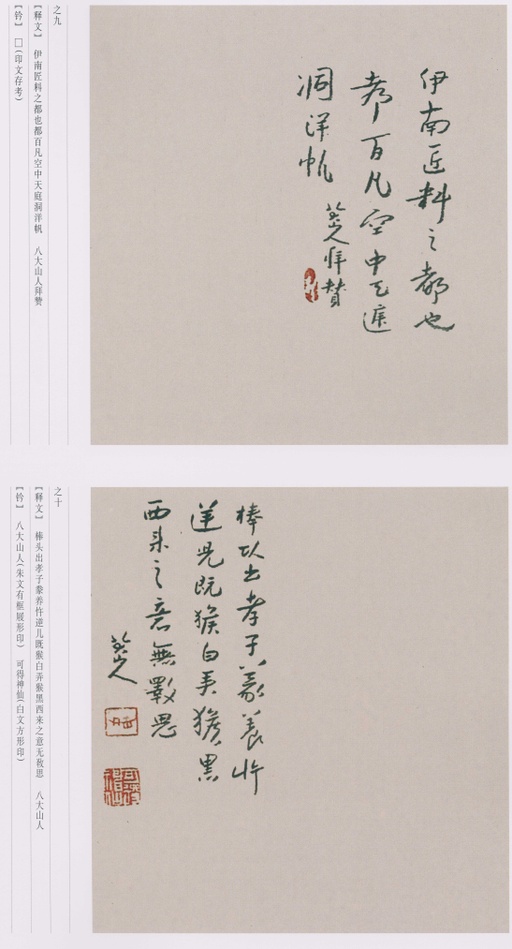 之九
【释文】 伊南匠料之都也都百凡空中天庭洞洋帆 八大山人拜赞
【钤】 □(印文存考)
伊南匠料之都也
都百凡空中天庭
洞洋帆
八大山人拜賛
之十
【释文】 棒头出孝子豢养忤逆儿既猴白弄猴黑西来之意无敌思 八大山人
【钤】 八大山人(朱文有框屐形印) 可得神仙(白文方形印)
棒頭出孝子豢养忤
逆児既猴白弄猴黒
西来之意無斁思
八大山人
可得神仙